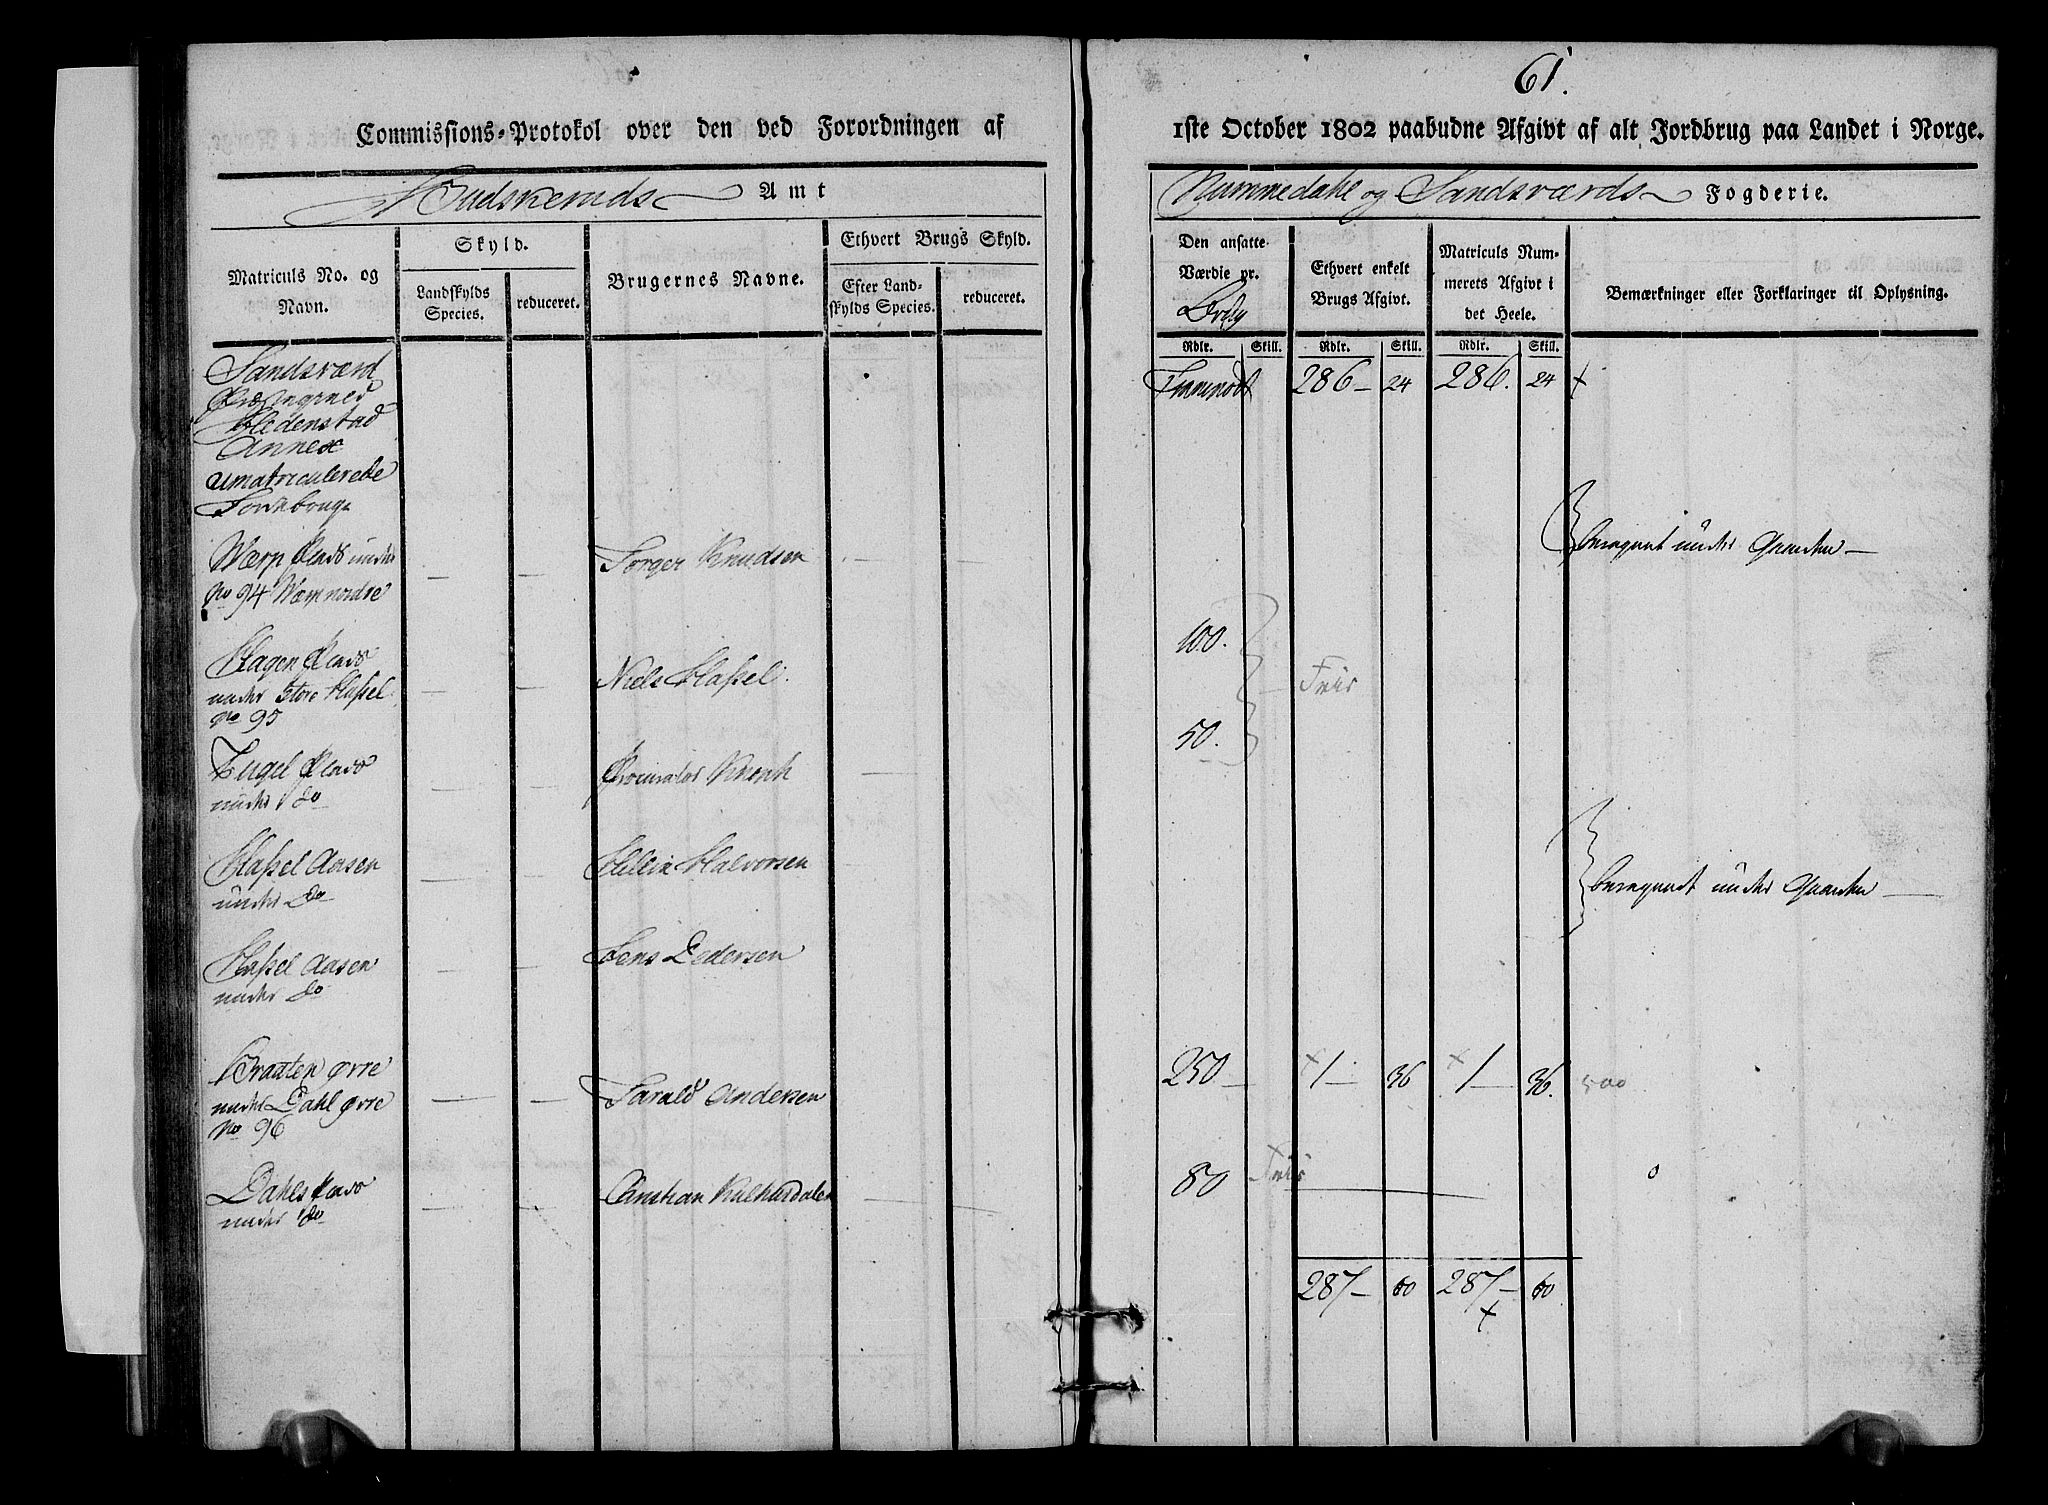 61.
Commissions-Protokol over den ved Forordningen af
1ste October 1802 paabudne Afgivt af alt Jordbrug paa Landet i Norge.
Budskeruds Amt
Nummedahl og Sandsværds Fogderie.
Matriculs No. og
Navn.
Skyld.
Landskylds
Species.
reduceret.
Brugernes Navne.
Ethvert Brugs Skyld.
Efter Land-
skylds Species.
reduceret.
Den ansatte
Værdie pr.
Ethvert enkelt
Brugs Afgivt.
Matriculs Num-
merets Afgivt i
det Heele.
Bemærkninger eller Forklaringer til Oplysning.
Rdlr. Skill. Rdlr. Skill. Rdlr. Skill.
Sandsværd
Hedenstad
Annex
umatriculerede
Jordebruge
286 24 286. 24
Wærp Plads under
No 94 Wærp nordre
Torger Knudsen
beregnet under
Hagen Plads
under Store Haßel
No 95
Niels Haßel.
100.
Friis
Plads
under do
50.
Haßel Aasen
under do
Halvorsen
beregnet under
Haßel Aasen
under do
Jens Pedersen
Braaten øvre
under Dahl øvre
No 96
Tarald Andersen
250 1 36 1 36. 500
Dahls Plads
under do
Christian
80 Friis
287 60 287 60